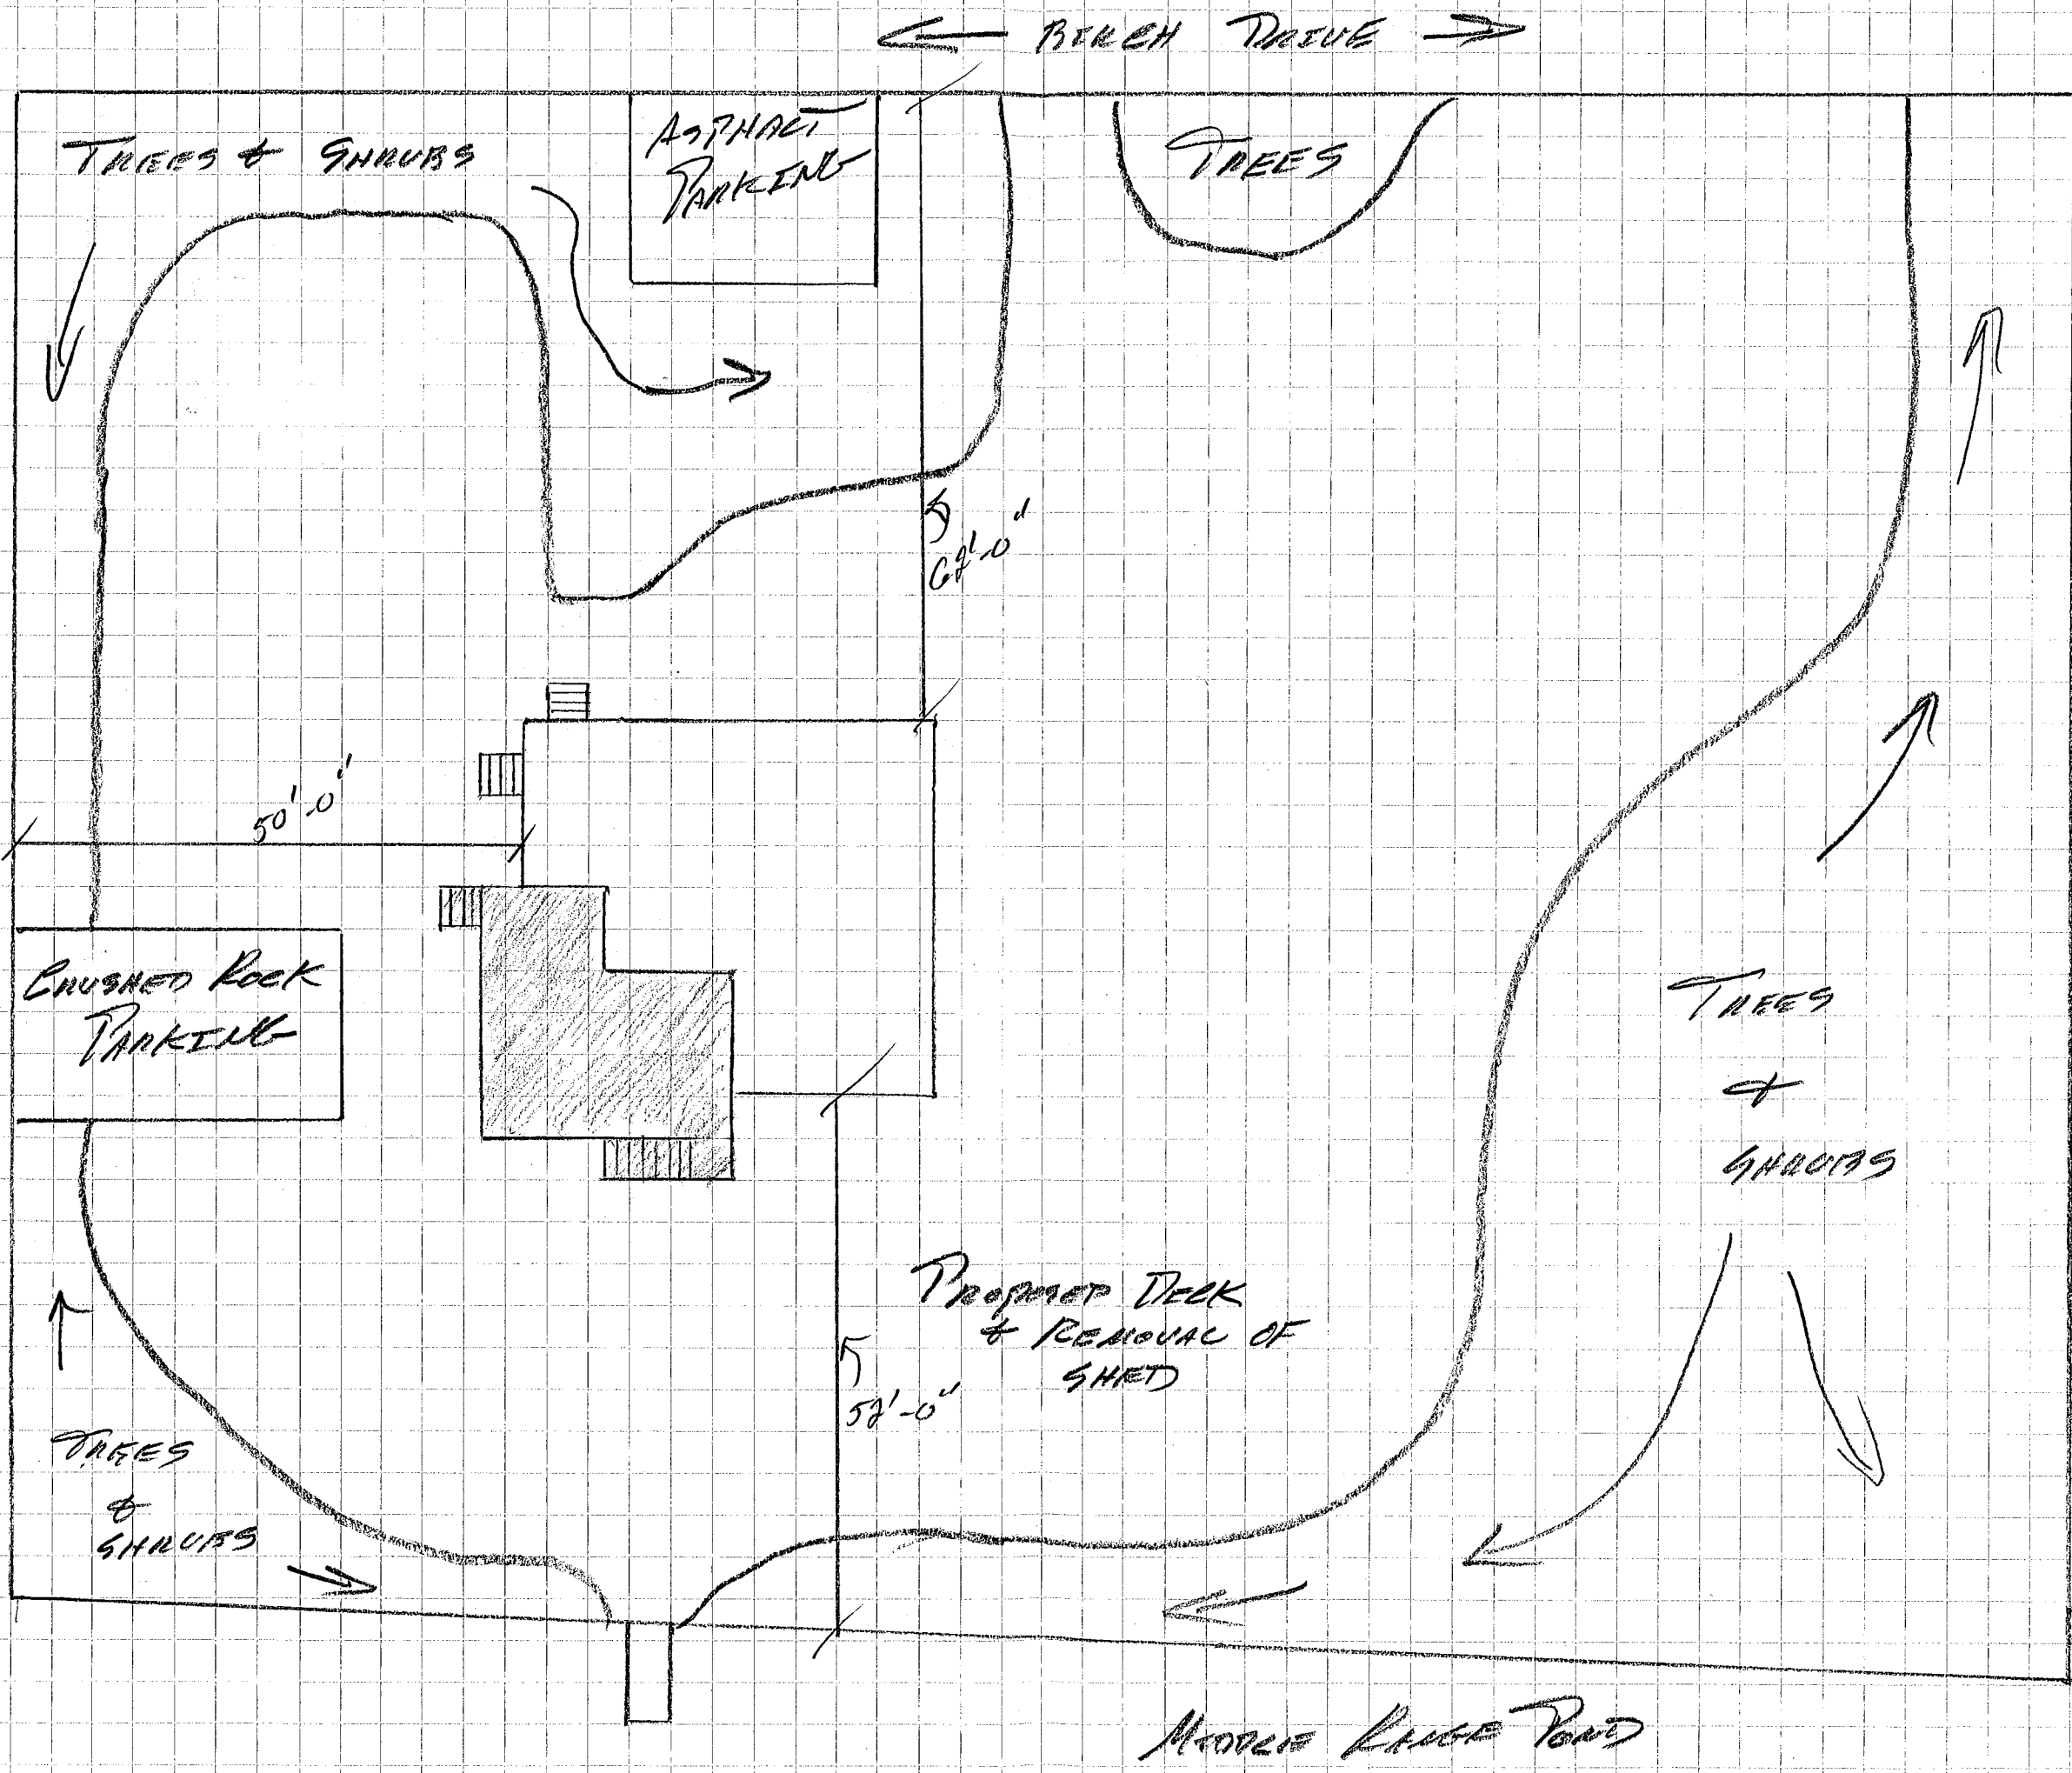 BIRCH DRIVE
TREES & SHRUBS
ASPHALT
PARKING
TREES
62'-0"
50'-0"
CRUSHED ROCK
PARKING
TREES
&
SHRUBS
PROPOSED DECK
& REMOVAL OF
SHED
52'-0"
TREES
&
SHRUBS
MIDDLE RANGE POND